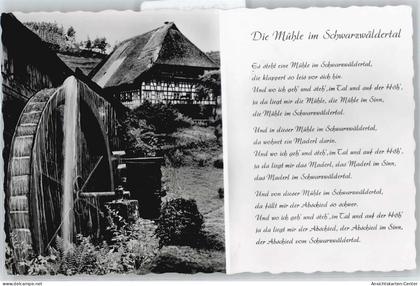 Die Mühle im Schwarzwäldertal
Es steht eine Mühle im Schwarzwäldertal,
die klappert so leis vor sich hin.
Und wo ich geh' und steh', im Tal und auf der Höh',
ja da liegt mir die Mühle, die Mühle im Sinn,
die Mühle im Schwarzwäldertal.
Und in dieser Mühle im Schwarzwäldertal,
da wohnet ein Maderl darin.
Und wo ich geh' und steh', im Tal und auf der Höh',
ja da liegt mir das Maderl, das Maderl im Sinn,
das Maderl im Schwarzwäldertal.
Und von dieser Mühle im Schwarzwäldertal,
da fällt mir der Abschied so schwer.
Und wo ich geh' und steh', im Tal und auf der Höh'
ja da liegt mir der Abschied, der Abschied im Sinn,
der Abschied vom Schwarzwäldertal.
www.ansichtskarten-center.de
Ansichtskarten-Center